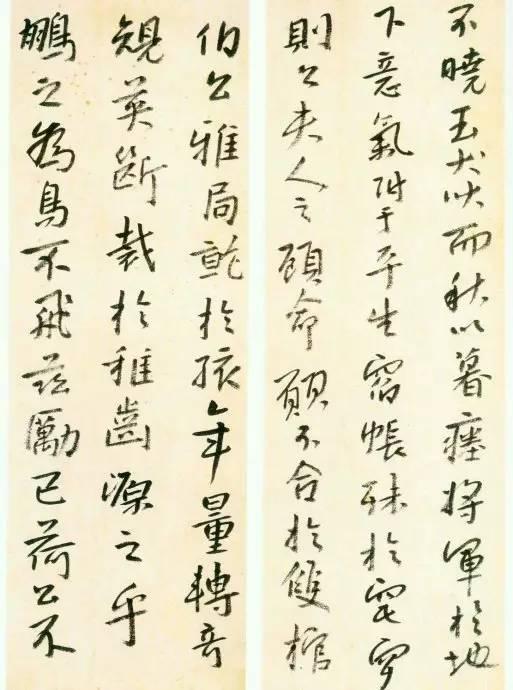 不曉玉犬吠而秋以暮瘞將軍於地
下意氣附于平生帳殊於窀穸
則公夫人之顧命願不合於雙棺
伯公雅局於孩年量轉奇
規英斷裁於稚齒源之乎
鵬之為鳥不飛茲勵已荷公不